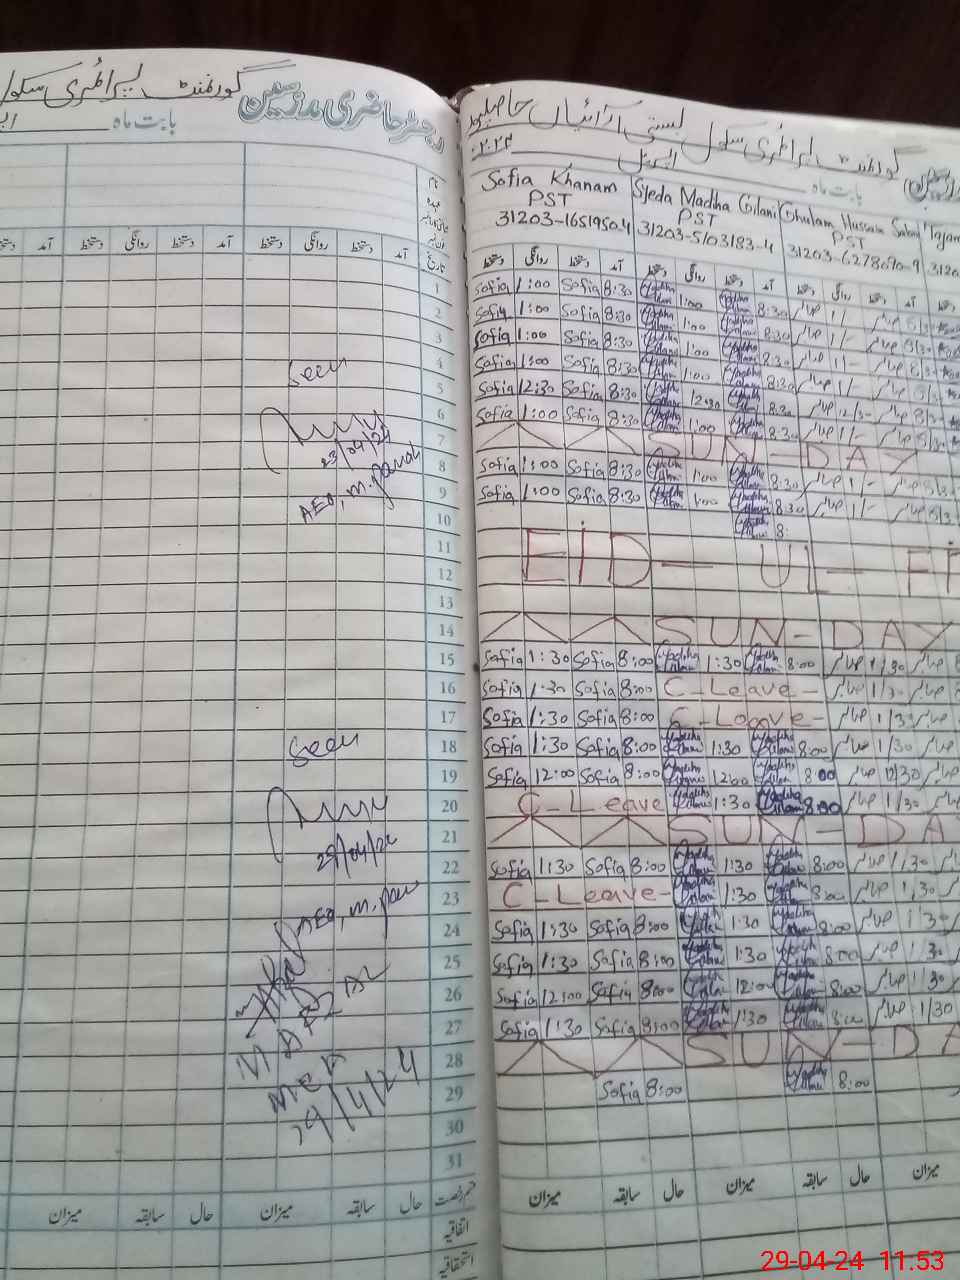 گورنمنٹ پرائمری سکول
رجسٹر حاضری مدرسین
بابت ماہ
نام
عہدہ
آمد دستخط روانگی دستخط آمد دستخط روانگی دستخط
تاریخ
1
2
3
4
5
6
7
8
9
10
11
12
13
14
15
16
17
18
19
20
21
22
23
24
25
26
27
28
29
30
31
Seen
23/04/24
AEO, M.
Seen
25/04/24
AEO, M.
29/4/24
حال سابقہ میزان حال سابقہ میزان
قسم رخصت
اتفاقیہ
استحقاقیہ
گورنمنٹ پرائمری سکول بستی آرائیاں حاصلپور
بابت ماہ اپریل ۲۰۲۴
Sofia Khanam Syeda Madiha Gilani Ghulam Hussain
PST PST PST
31203-1651950-4 31203-5103183-4 31203-6278090-9 3120
دستخط روانگی دستخط آمد دستخط روانگی دستخط آمد دستخط روانگی دستخط آمد
Sofia 1:00 Sofia 8:30 Madiha Gilani 1:00 Madiha Gilani 8:30 صابر 1/- صابر 8/30
Sofia 1:00 Sofia 8:30 Madiha Gilani 1:00 Madiha Gilani 8:30 صابر 1/- صابر 8/30
Sofia 1:00 Sofia 8:30 Madiha Gilani 1:00 Madiha Gilani 8:30 صابر 1/- صابر 8/30
Sofia 1:00 Sofia 8:30 Madiha Gilani 1:00 Madiha Gilani 8:30 صابر 1/- صابر 8/30
Sofia 12:30 Sofia 8:30 Madiha Gilani 12:30 Madiha Gilani 8:30 صابر 12/30 صابر 8/30
Sofia 1:00 Sofia 8:30 Madiha Gilani 1:00 Madiha Gilani 8:30 صابر 1/- صابر 8/30
SUN-DAY
Sofia 1:00 Sofia 8:30 Madiha Gilani 1:00 Madiha Gilani 8:30 صابر 1/- صابر 8/30
Sofia 1:00 Sofia 8:30 Madiha Gilani 1:00 Madiha Gilani 8:30 صابر 1/- صابر 8/30
Madiha Gilani 8:
EID-UL-FI
SUN-DAY
Sofia 1:30 Sofia 8:00 Madiha Gilani 1:30 Madiha Gilani 8:00 صابر 1/30 صابر
Sofia 1:30 Sofia 8:00 C-Leave- صابر 1/30 صابر
Sofia 1:30 Sofia 8:00 C-Leave- صابر 1/30 صابر
Sofia 1:30 Sofia 8:00 Madiha Gilani 1:30 Madiha Gilani 8:00 صابر 1/30 صابر
Sofia 12:00 Sofia 8:00 Madiha Gilani 12:00 Madiha Gilani 8:00 صابر 12/30 صابر
C-Leave Madiha Gilani 1:30 Madiha Gilani 8:00 صابر 1/30 صابر
SUN-DA
Sofia 1:30 Sofia 8:00 Madiha Gilani 1:30 Madiha Gilani 8:00 صابر 1/30
C-Leave- Madiha Gilani 1:30 Madiha Gilani 8:00 صابر 1/30
Sofia 1:30 Sofia 8:00 Madiha Gilani 1:30 Madiha Gilani 8:00 صابر 1/30
Sofia 1:30 Sofia 8:00 Madiha Gilani 1:30 Madiha Gilani 8:00 صابر 1/30
Sofia 12:00 Sofia 8:00 Madiha Gilani 12:00 Madiha Gilani 8:00 صابر 1/30
Sofia 1:30 Sofia 8:00 Madiha Gilani 1:30 Madiha Gilani 8:00 صابر 1/30
SUN-DA
Sofia 8:00 Madiha Gilani 8:00
میزان سابقہ حال میزان سابقہ حال میزان
29-04-24 11.53